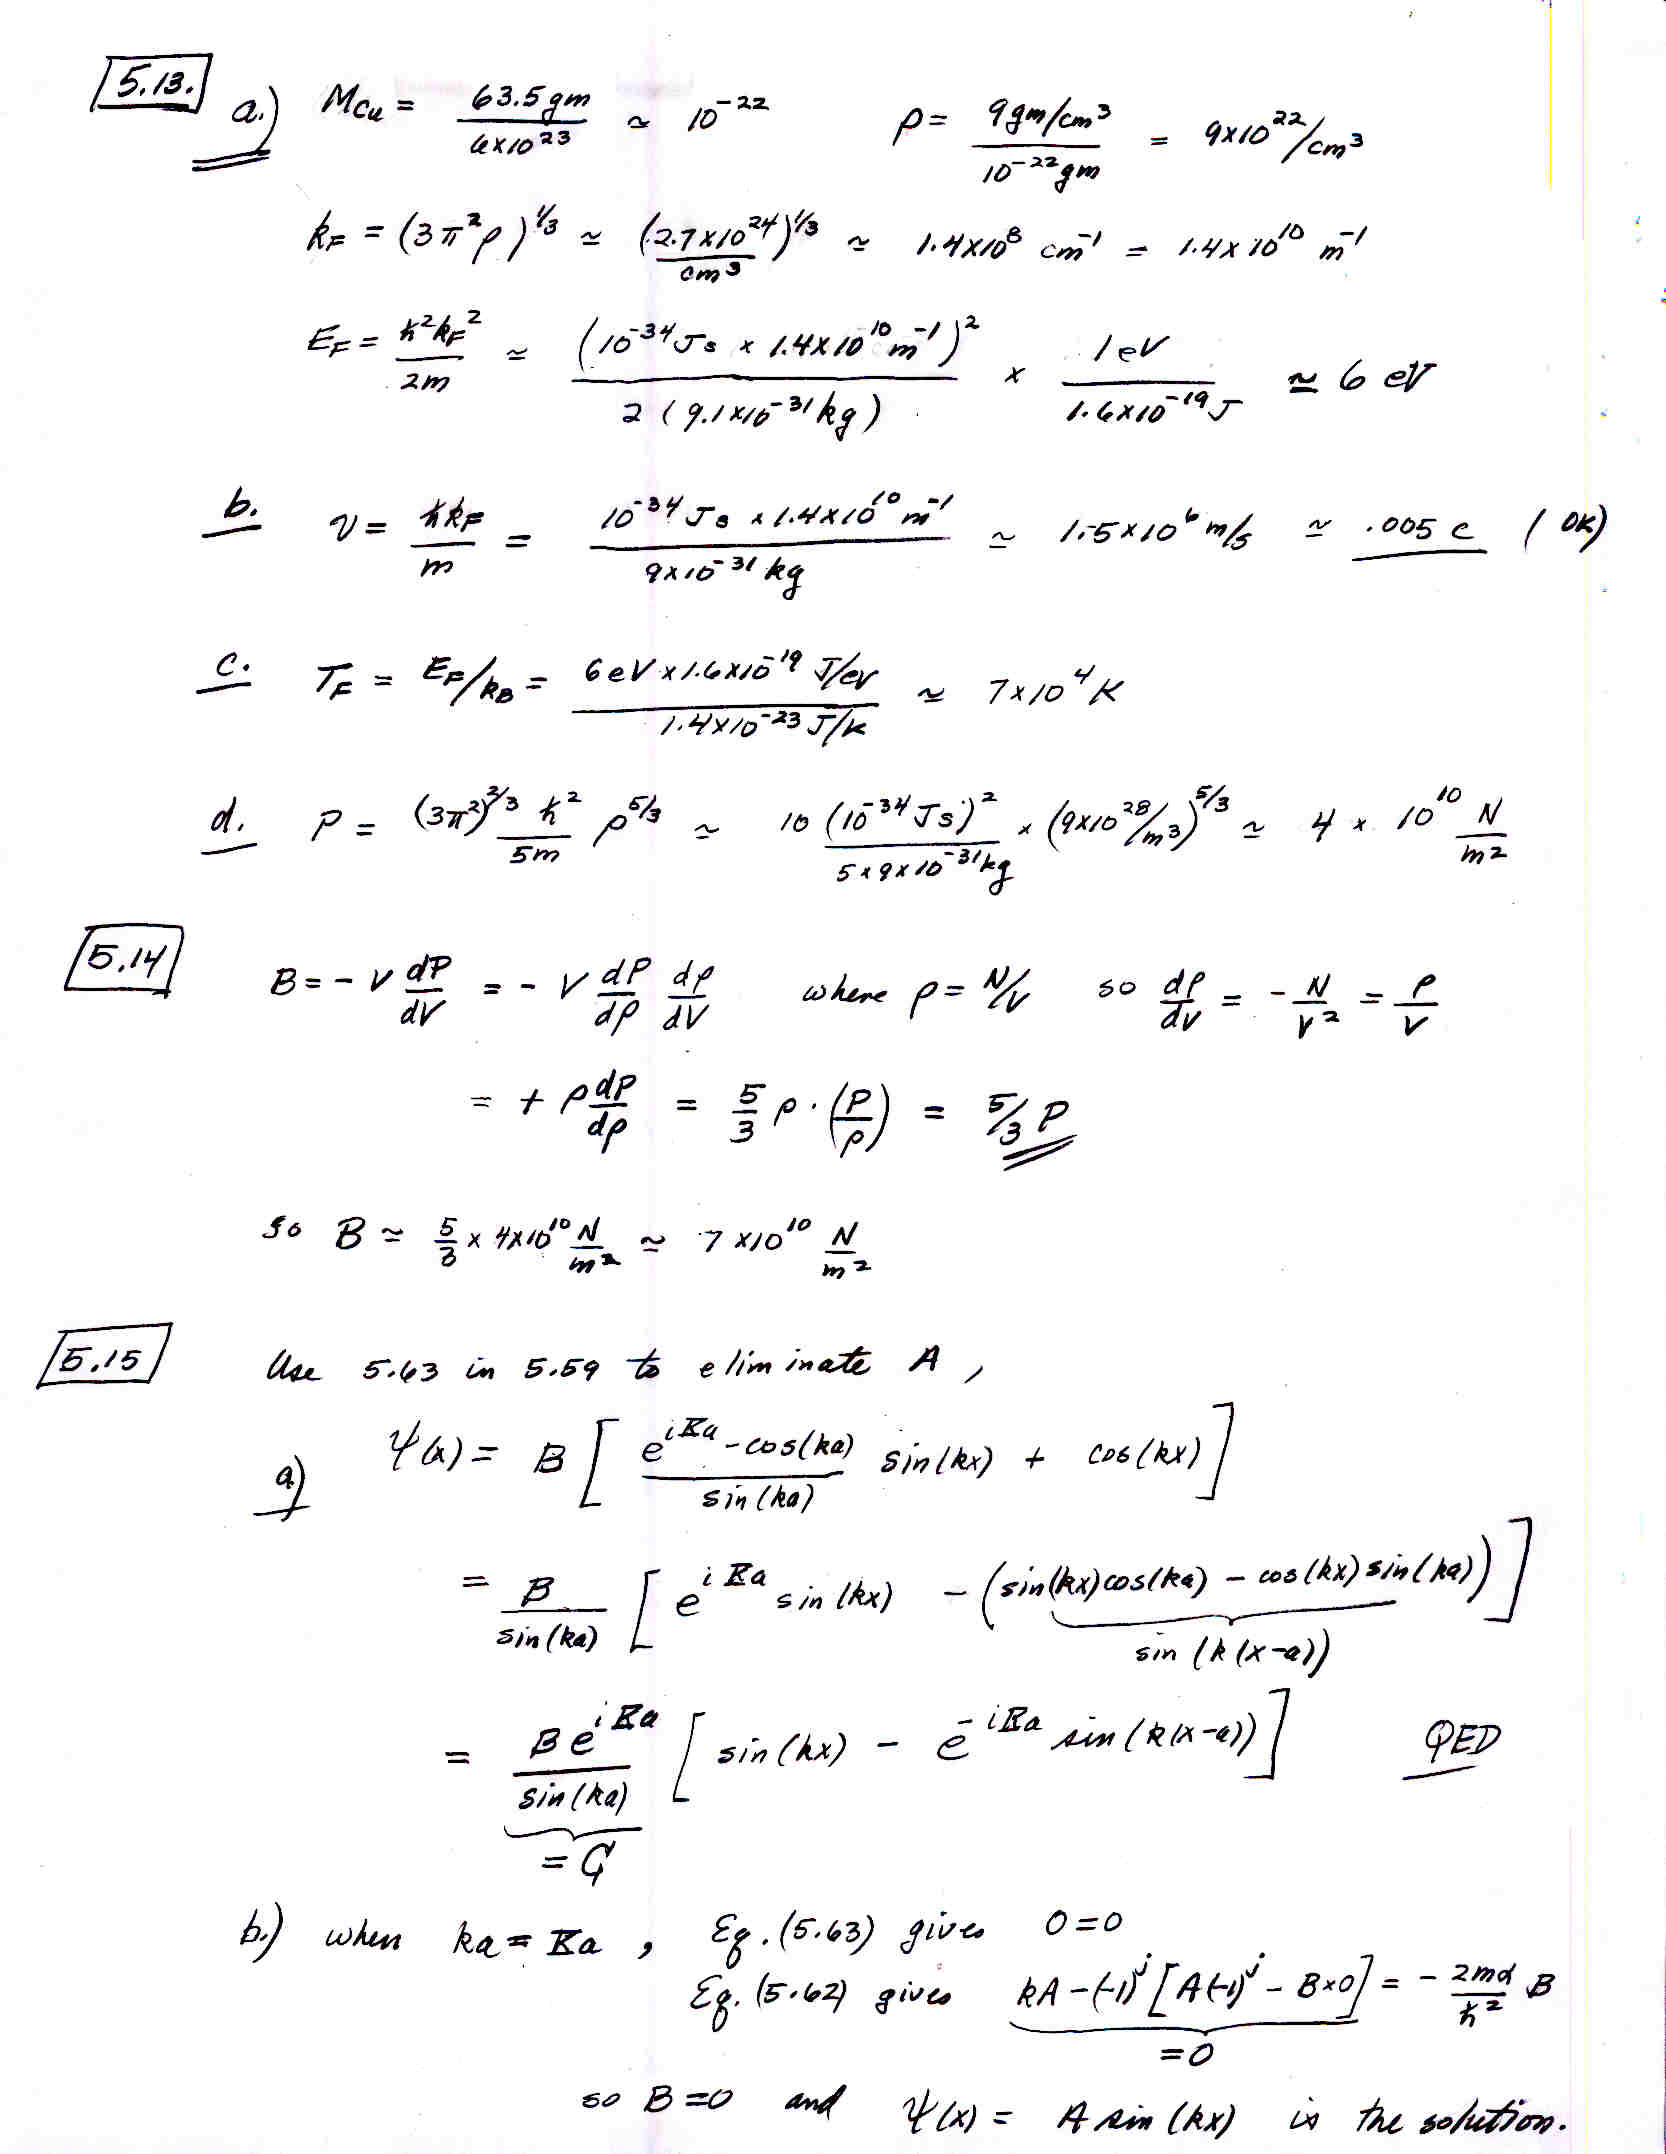 5.13. a.) M_Cu = 63.5 gm / 6×10^23 ≃ 10^-22   ρ = 9 gm/cm^3 / 10^-22 gm = 9×10^22/cm^3
k_F = (3π^2 ρ)^1/3 ≃ (2.7×10^24 / cm^3)^1/3 ≃ 1.4×10^8 cm^-1 = 1.4×10^10 m^-1
E_F = ħ^2 k_F^2 / 2m ≃ (10^-34 Js × 1.4×10^10 m^-1)^2 / 2(9.1×10^-31 kg) × 1 eV / 1.6×10^-19 J ≃ 6 eV
b. v = ħk_F / m = 10^-34 Js × 1.4×10^10 m^-1 / 9×10^-31 kg ≃ 1.5×10^6 m/s ≃ .005 c (OK)
c. T_F = E_F/k_B = 6 eV × 1.6×10^-19 J/eV / 1.4×10^-23 J/K ≃ 7×10^4 K
d. P = (3π^2)^2/3 ħ^2 / 5m ρ^5/3 ≃ 10 (10^-34 Js)^2 / 5×9×10^-31 kg × (9×10^28/m^3)^5/3 ≃ 4 × 10^10 N/m^2
5.14 B = - V dP/dV = - V dP/dρ dρ/dV where ρ = N/V so dρ/dV = - N/V^2 = ρ/V
= + ρ dP/dρ = 5/3 ρ · (P/ρ) = 5/3 P
so B ≃ 5/3 × 4×10^10 N/m^2 ≃ 7×10^10 N/m^2
5.15 Use 5.63 in 5.59 to eliminate A,
a) Ψ(x) = B [ e^iKa - cos(ka) / sin(ka) sin(kx) + cos(kx) ]
= B / sin(ka) [ e^iKa sin(kx) - (sin(kx)cos(ka) - cos(kx)sin(ka)) ]
sin(k(x-a))
= B e^iKa / sin(ka) [ sin(kx) - e^-iKa sin(k(x-a)) ] QED
= C
b.) when ka = Ka, Eq. (5.63) gives 0=0
Eq. (5.62) gives kA - (-1)^j [A(-1)^j - B×0] = - 2mα/ħ^2 B
=0
so B=0 and Ψ(x) = A sin(kx) is the solution.